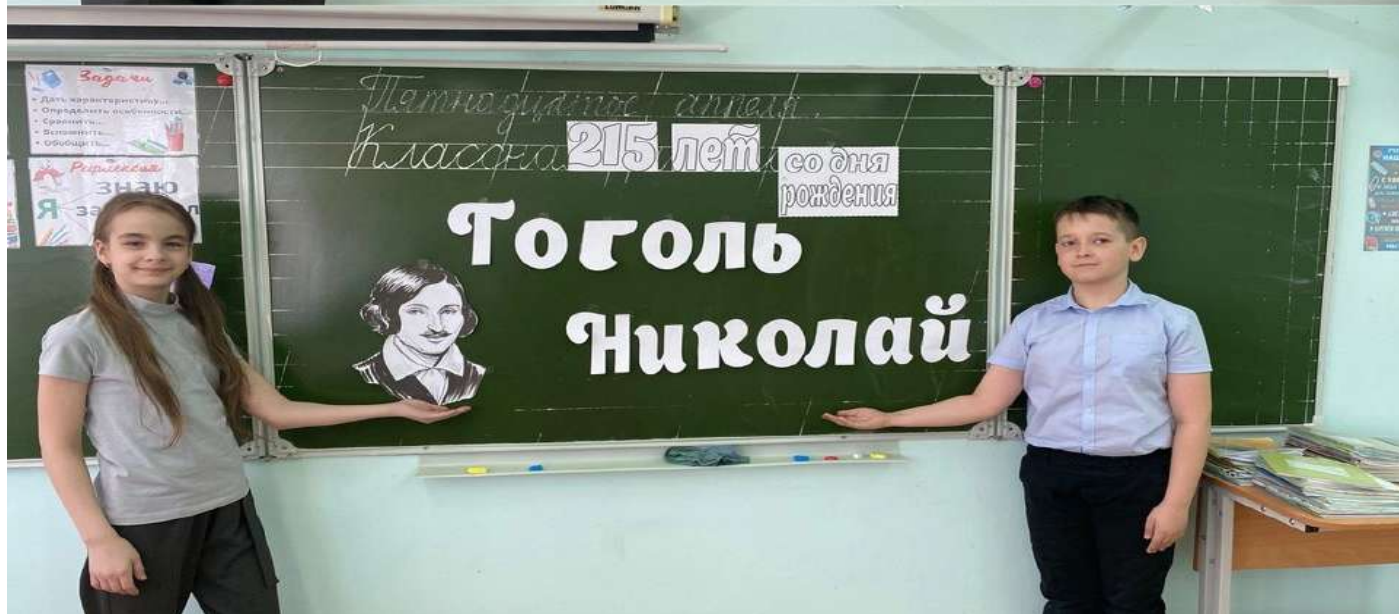 Задачи
• Дать характеристику...
• Определить особенности...
• Сравнить...
• Вспомнить...
• Обобщить...
Рефлексия
знаю
Я
Пятнадцатое апреля.
215 лет
со дня
рождения
Гоголь
Николай